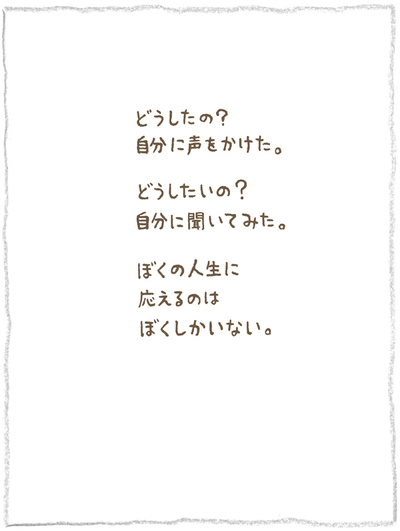 どうしたの?
自分に声をかけた。
どうしたいの?
自分に聞いてみた。
ぼくの人生に
応えるのは
ぼくしかいない。